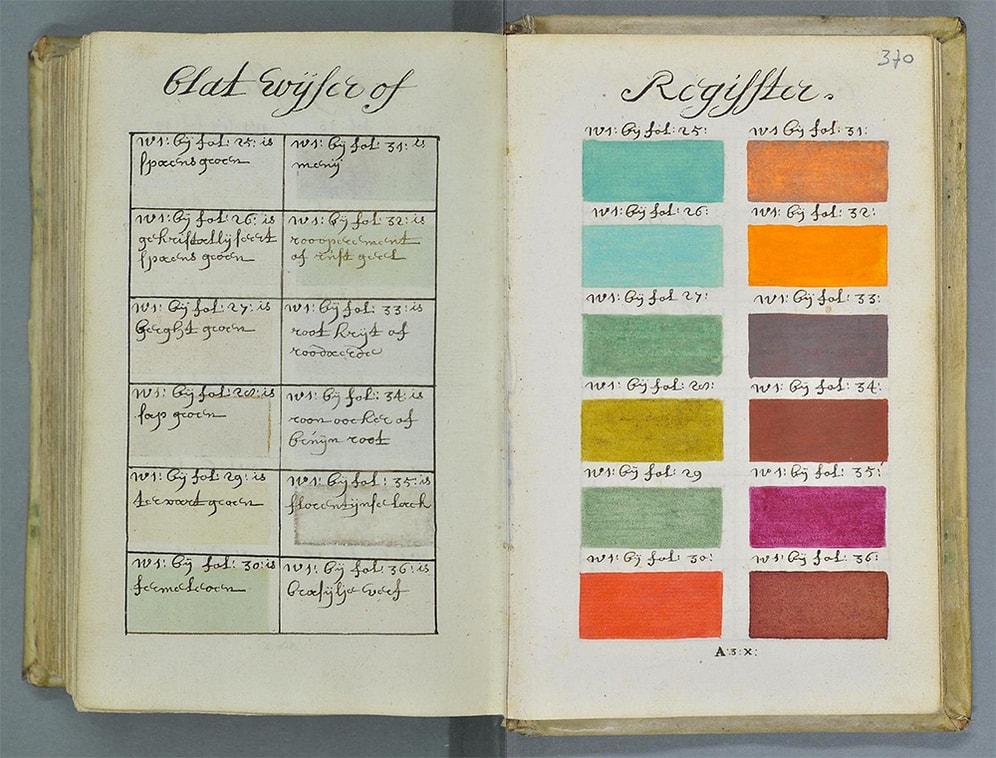 Blat Wijser of
w1: bij fol: 25: is
spaens groen
w1: bij fol: 31: is
menij
w1: bij fol: 26: is
gekristallijseert
spaens groen
w1: bij fol: 32: is
rooopperment
of rüst geel
w1: bij fol: 27: is
berght groen
w1: bij fol: 33: is
root krijt of
roodaerde
w1: bij fol: 28: is
sap groen
w1: bij fol: 34: is
roon oocker of
brüijn root
w1: bij fol: 29: is
groen
w1: bij fol: 35: is
florentijnse lack
w1: bij fol: 30: is
fermeleoen
w1: bij fol: 36: is
brasijlje verf
370
Regisster.
w1: bij fol: 25:
w1: bij fol: 31:
w1: bij fol: 26:
w1: bij fol: 32:
w1: bij fol: 27:
w1: bij fol: 33:
w1: bij fol: 28:
w1: bij fol: 34:
w1: bij fol: 29
w1: bij fol: 35:
w1: bij fol: 30:
w1: bij fol: 36:
A:3:x: